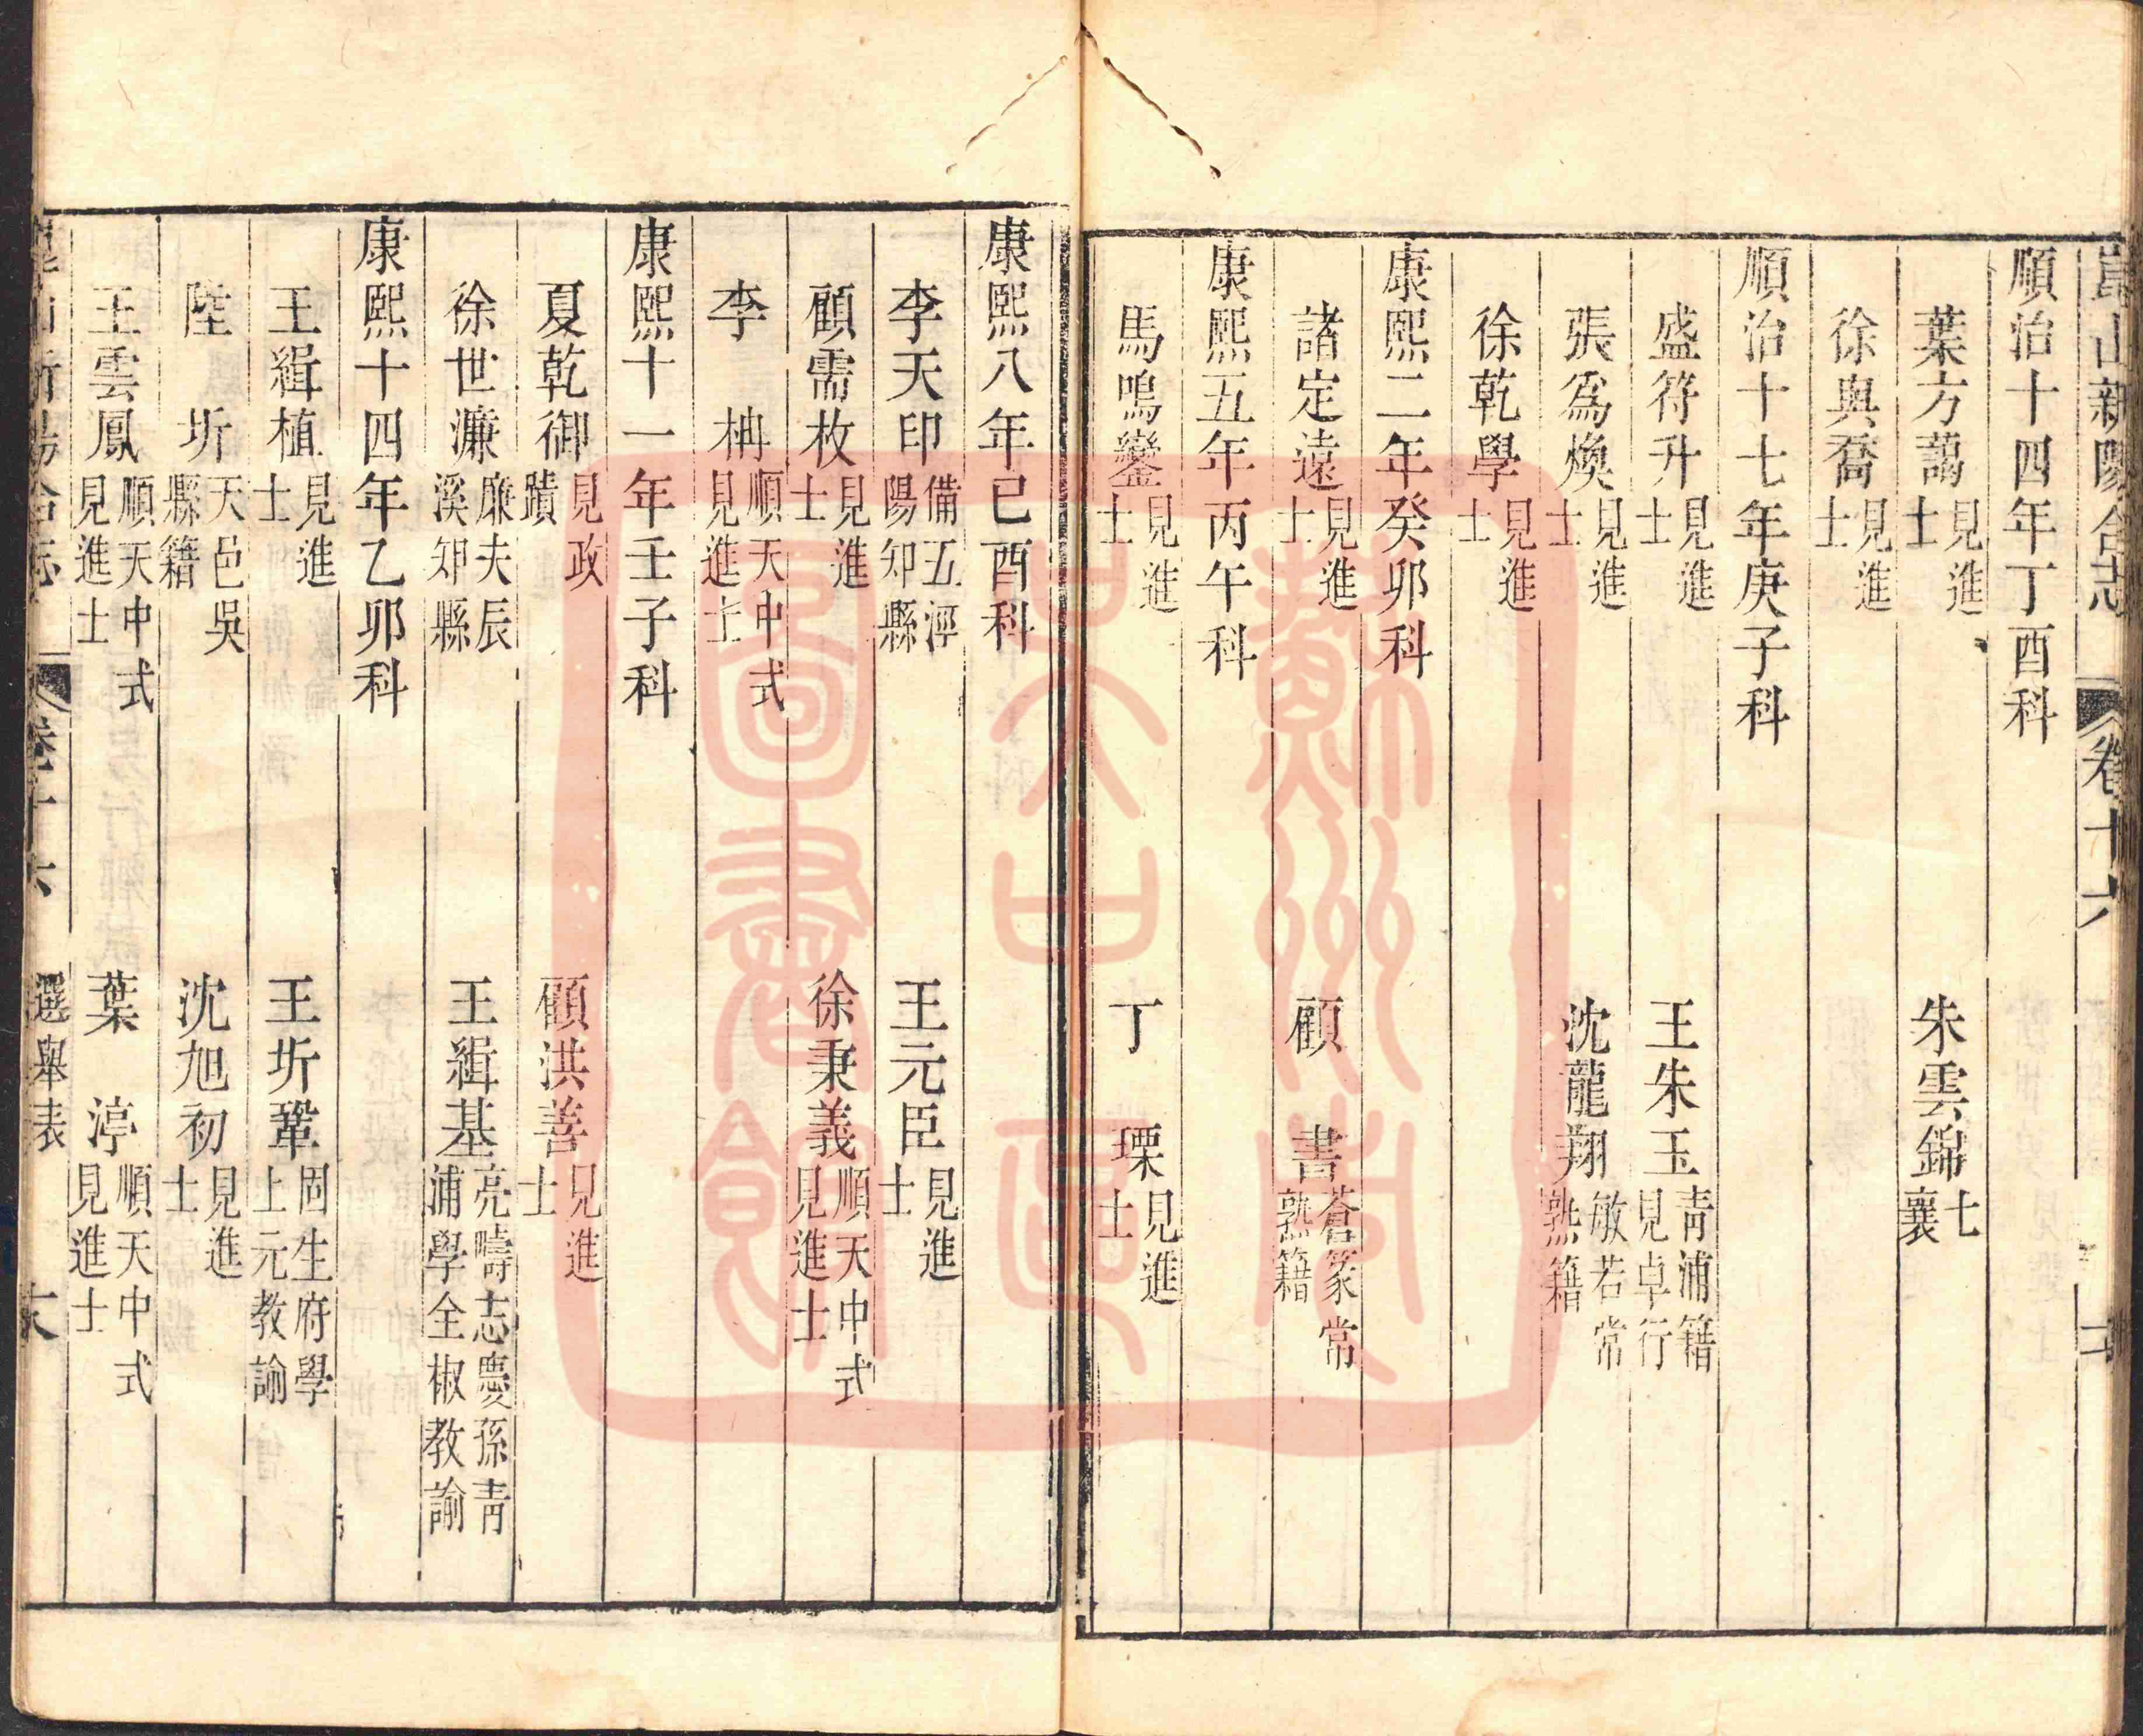 崑山新陽合志 卷十六
順治十四年丁酉科
葉方藹 見進士 朱雲錦 七襄
徐與喬 見進士
順治十七年庚子科
盛符升 見進士 王朱玉 靑浦籍見卓行
張爲煥 見進士 沈龍翔 敏若常熟籍
徐乾學 見進士
康熙二年癸卯科
諸定遠 見進士 顧書 蒼篆常熟籍
康熙五年丙午科
馬鳴鑾 見進士 丁瑮 見進士
康熙八年己酉科
李天印 備五涇陽知縣 王元臣 見進士
顧需枚 見進士 徐秉義 順天中式見進士
李柟 順天中式見進士
康熙十一年壬子科
夏乾御 見政蹟 顧洪善 見進士
徐世濂 廉夫辰溪知縣 王緝基 亮疇志慶孫靑浦學全椒教諭
康熙十四年乙卯科
王緝植 見進士 王圻鞏 固生府學上元教諭
陸圻 天邑吳縣籍 沈旭初 見進士
王雲鳳 順天中式見進士 葉渟 順天中式見進士
崑山新陽合志 卷十六 選舉表
蘇州市吳中區圖書館